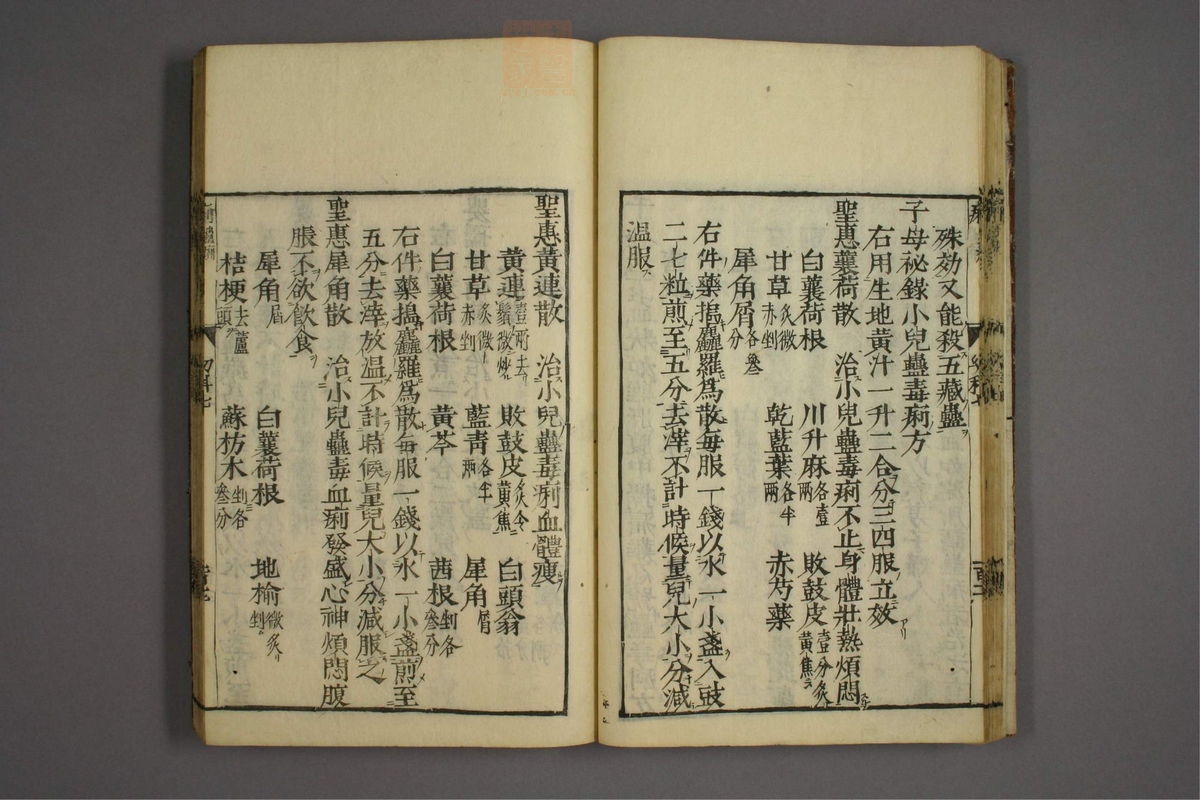 殊効又能殺五藏蠱
子母祕錄小兒蠱毒痢方
右用生地黃汁一升二合分三四服立效
聖惠蘘荷散　治小兒蠱毒痢不止身體壯熱煩悶
白蘘荷根　川升麻各壹兩　敗鼓皮壹分炙黃焦
甘草炙微赤剉　乾藍葉各半兩　赤芍藥
犀角屑各叁分
右件藥搗麤羅爲散每服一錢以水一小盞入豉
二七粒煎至五分去滓不計時候量兒大小分減
温服
聖惠黃連散　治小兒蠱毒痢血體瘦
黃連壹兩去鬚微炒　敗鼓皮炙令黃焦　白頭翁
甘草炙微赤剉　藍青各半兩　犀角屑
白蘘荷根　黃芩　茜根剉各叁分
右件藥搗麤羅爲散每服一錢以水一小盞煎至
五分去滓放温不計時候量兒大小分減服之
聖惠犀角散　治小兒蠱毒血痢發盛心神煩悶腹
脹不欲飲食
犀角屑　白蘘荷根　地榆微炙剉
桔梗去蘆頭　蘇枋木剉各叁分
幼科七